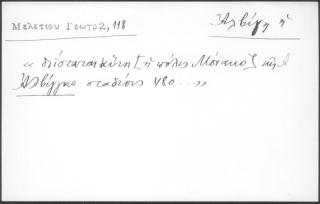 Μελετίου Γεωγρ, 118
Ἀλβίγη ἡ
« διΐσταται αὕτη [ἡ πόλις Μόνακο] τῆς
Ἀλβίγγας σταδίους 480 ... »